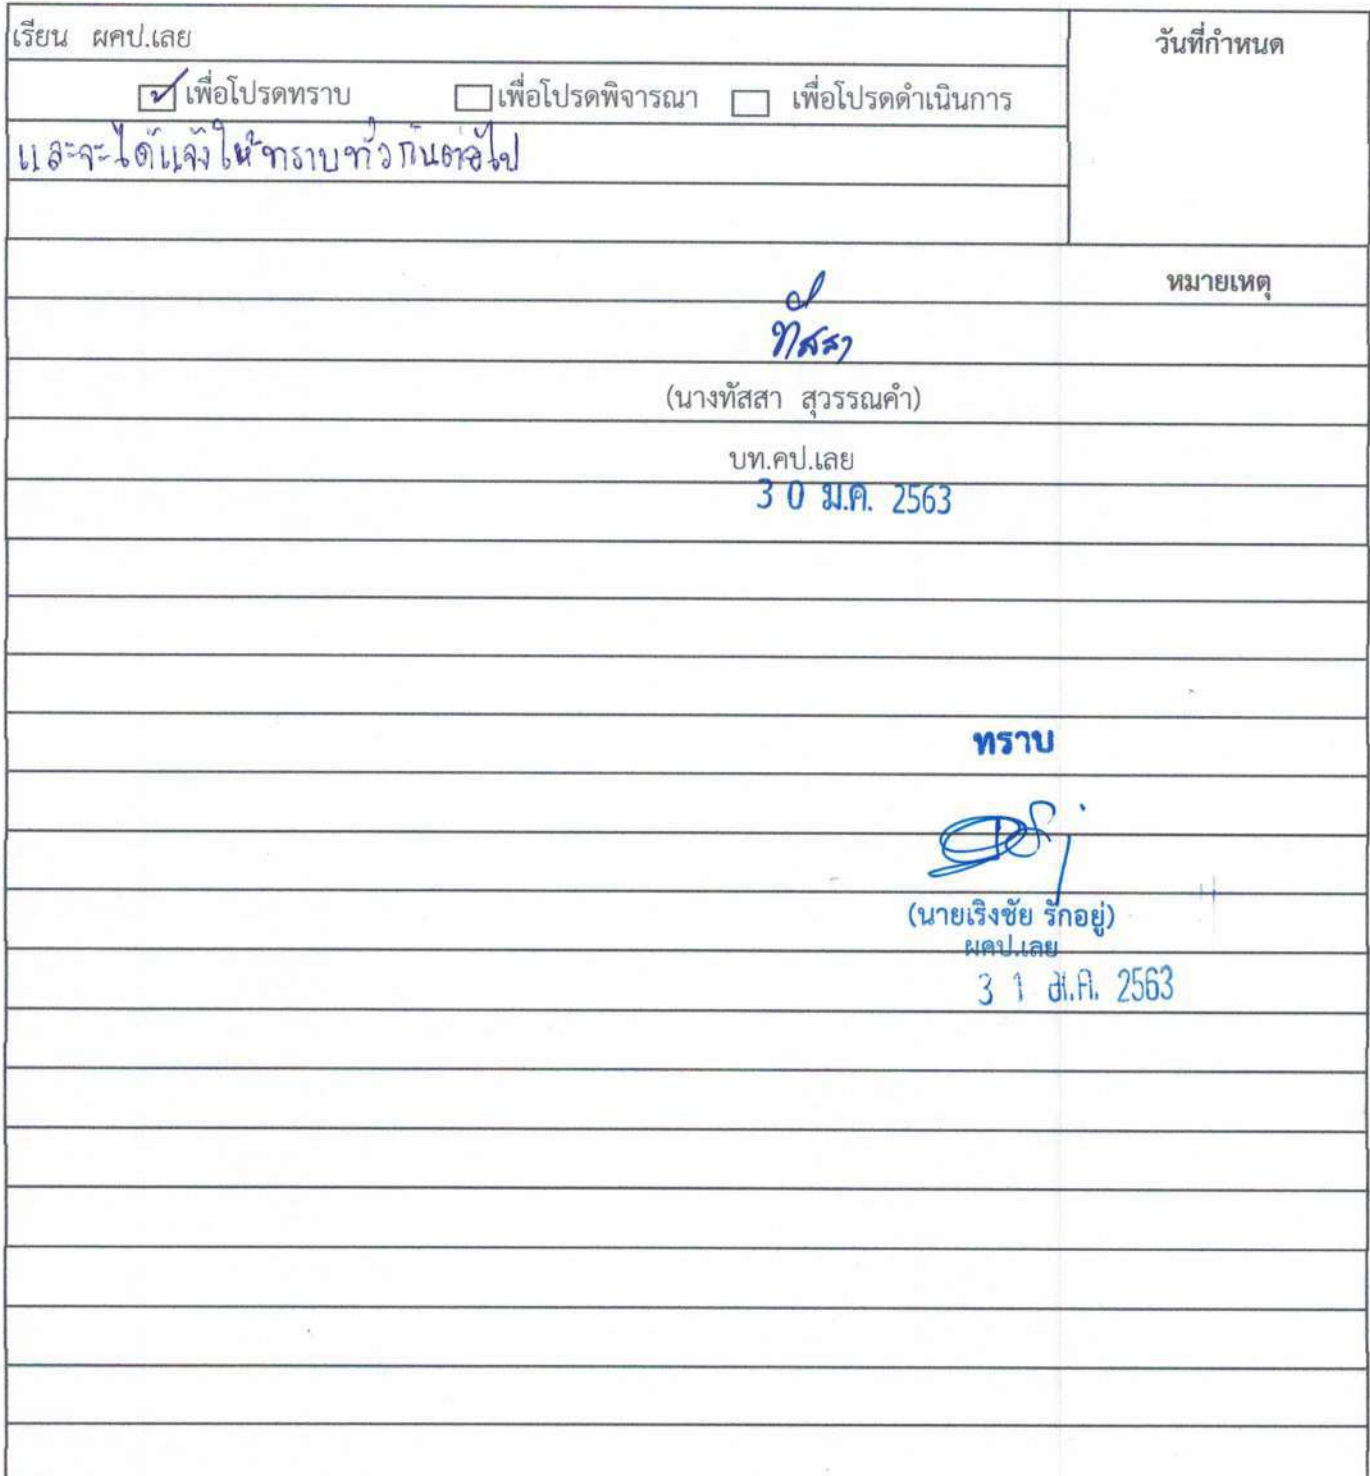 เรียน ผคป.เลย
วันที่กำหนด
เพื่อโปรดทราบ เพื่อโปรดพิจารณา เพื่อโปรดดำเนินการ
และจะได้แจ้งให้ทราบทั่วกันต่อไป
หมายเหตุ
ทัสสา
(นางทัสสา สุวรรณคำ)
บท.คป.เลย
30 ม.ค. 2563
ทราบ
(นายเริงชัย รักอยู่)
ผคป.เลย
31 ม.ค. 2563